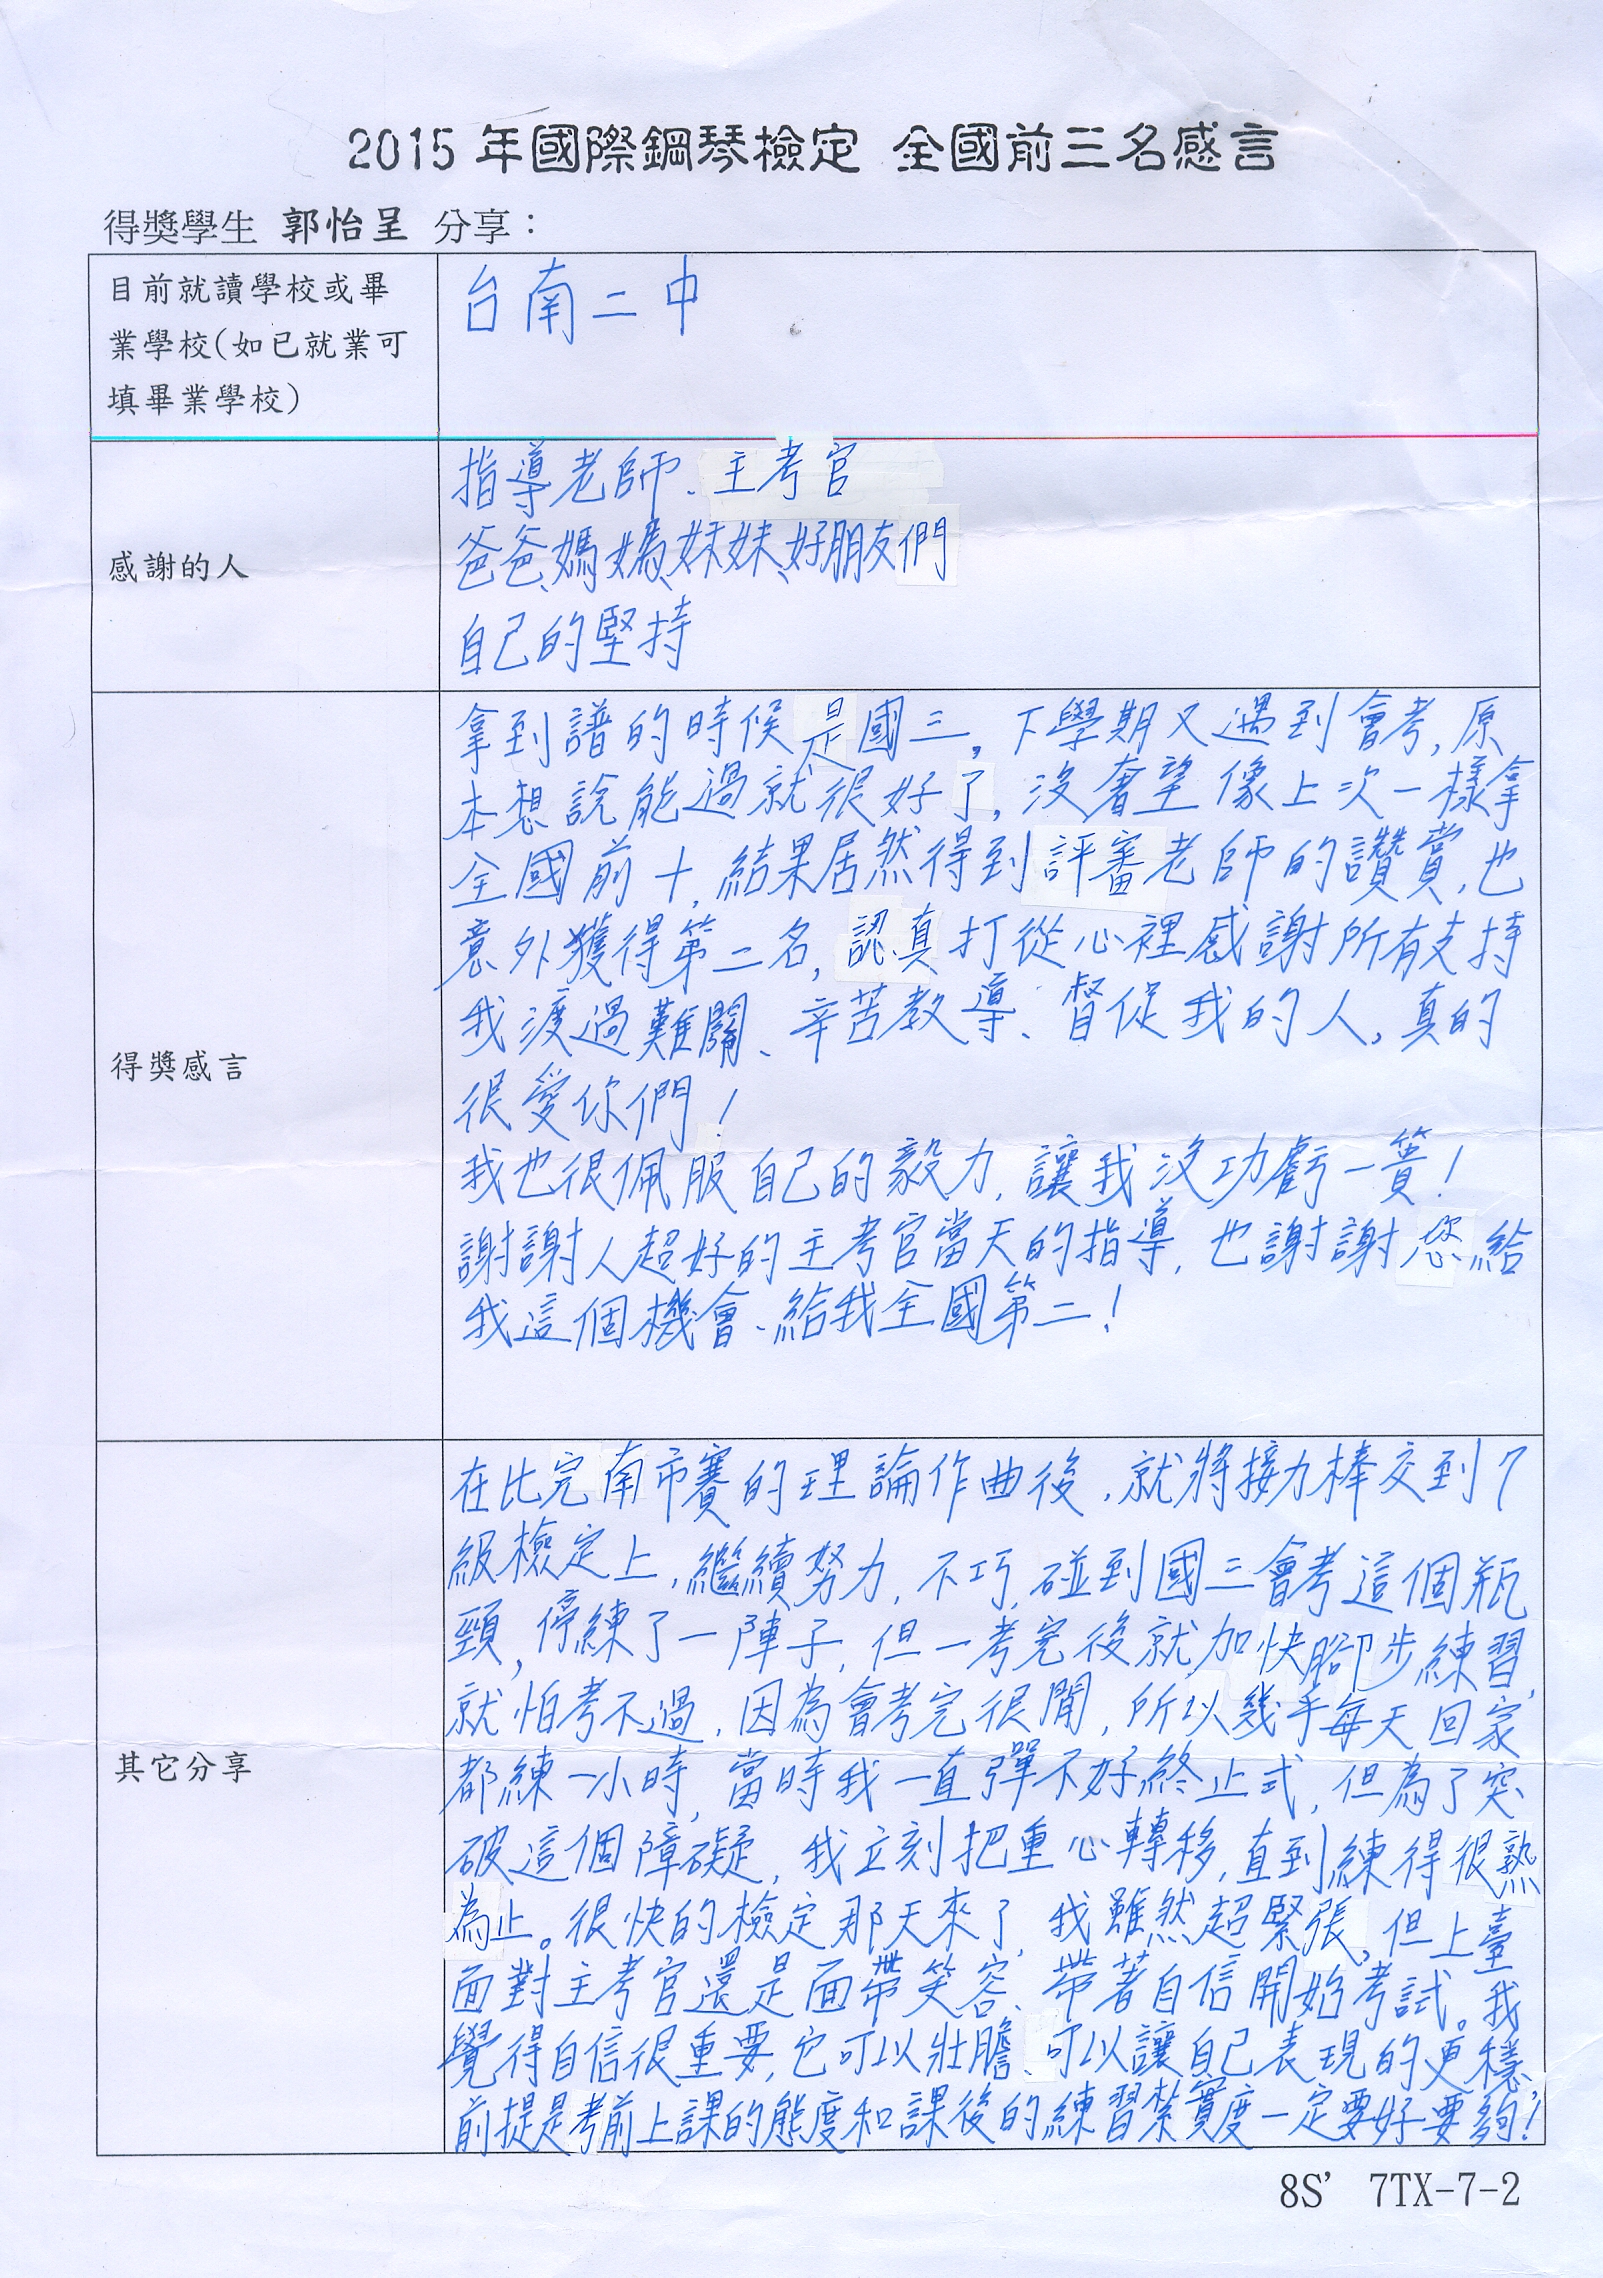 2015 年國際鋼琴檢定 全國前三名感言
得獎學生 郭怡呈 分享：
目前就讀學校或畢
業學校(如已就業可
填畢業學校)
台南二中
感謝的人
指導老師、主考官
爸爸、媽媽、妹妹、好朋友們
自己的堅持
得獎感言
拿到譜的時候是國三，下學期又遇到會考，原
本想說能過就很好了，沒奢望像上次一樣拿
全國前十，結果居然得到評審老師的讚賞，也
意外獲得第二名，認真打從心裡感謝所有支持
我渡過難關、辛苦教導、督促我的人，真的
很愛你們！
我也很佩服自己的毅力，讓我沒功虧一簣！
謝謝人超好的主考官當天的指導，也謝謝您給
我這個機會、給我全國第二！
其它分享
在比完南市賽的理論作曲後，就將接力棒交到7
級檢定上，繼續努力，不巧，碰到國三會考這個瓶
頸，停練了一陣子，但一考完後就加快腳步練習，
就怕考不過，因為會考完很閒，所以幾乎每天回家
都練一小時，當時我一直彈不好終止式，但為了突
破這個障礙，我立刻把重心轉移，直到練得很熟
為止。很快的檢定那天來了，我雖然超緊張，但上臺
面對主考官還是面帶笑容、帶著自信開始考試。我
覺得自信很重要，它可以壯膽、可以讓自己表現的更穩，
前提是考前上課的態度和課後的練習紮實度一定要好要夠！
8S’ 7TX-7-2